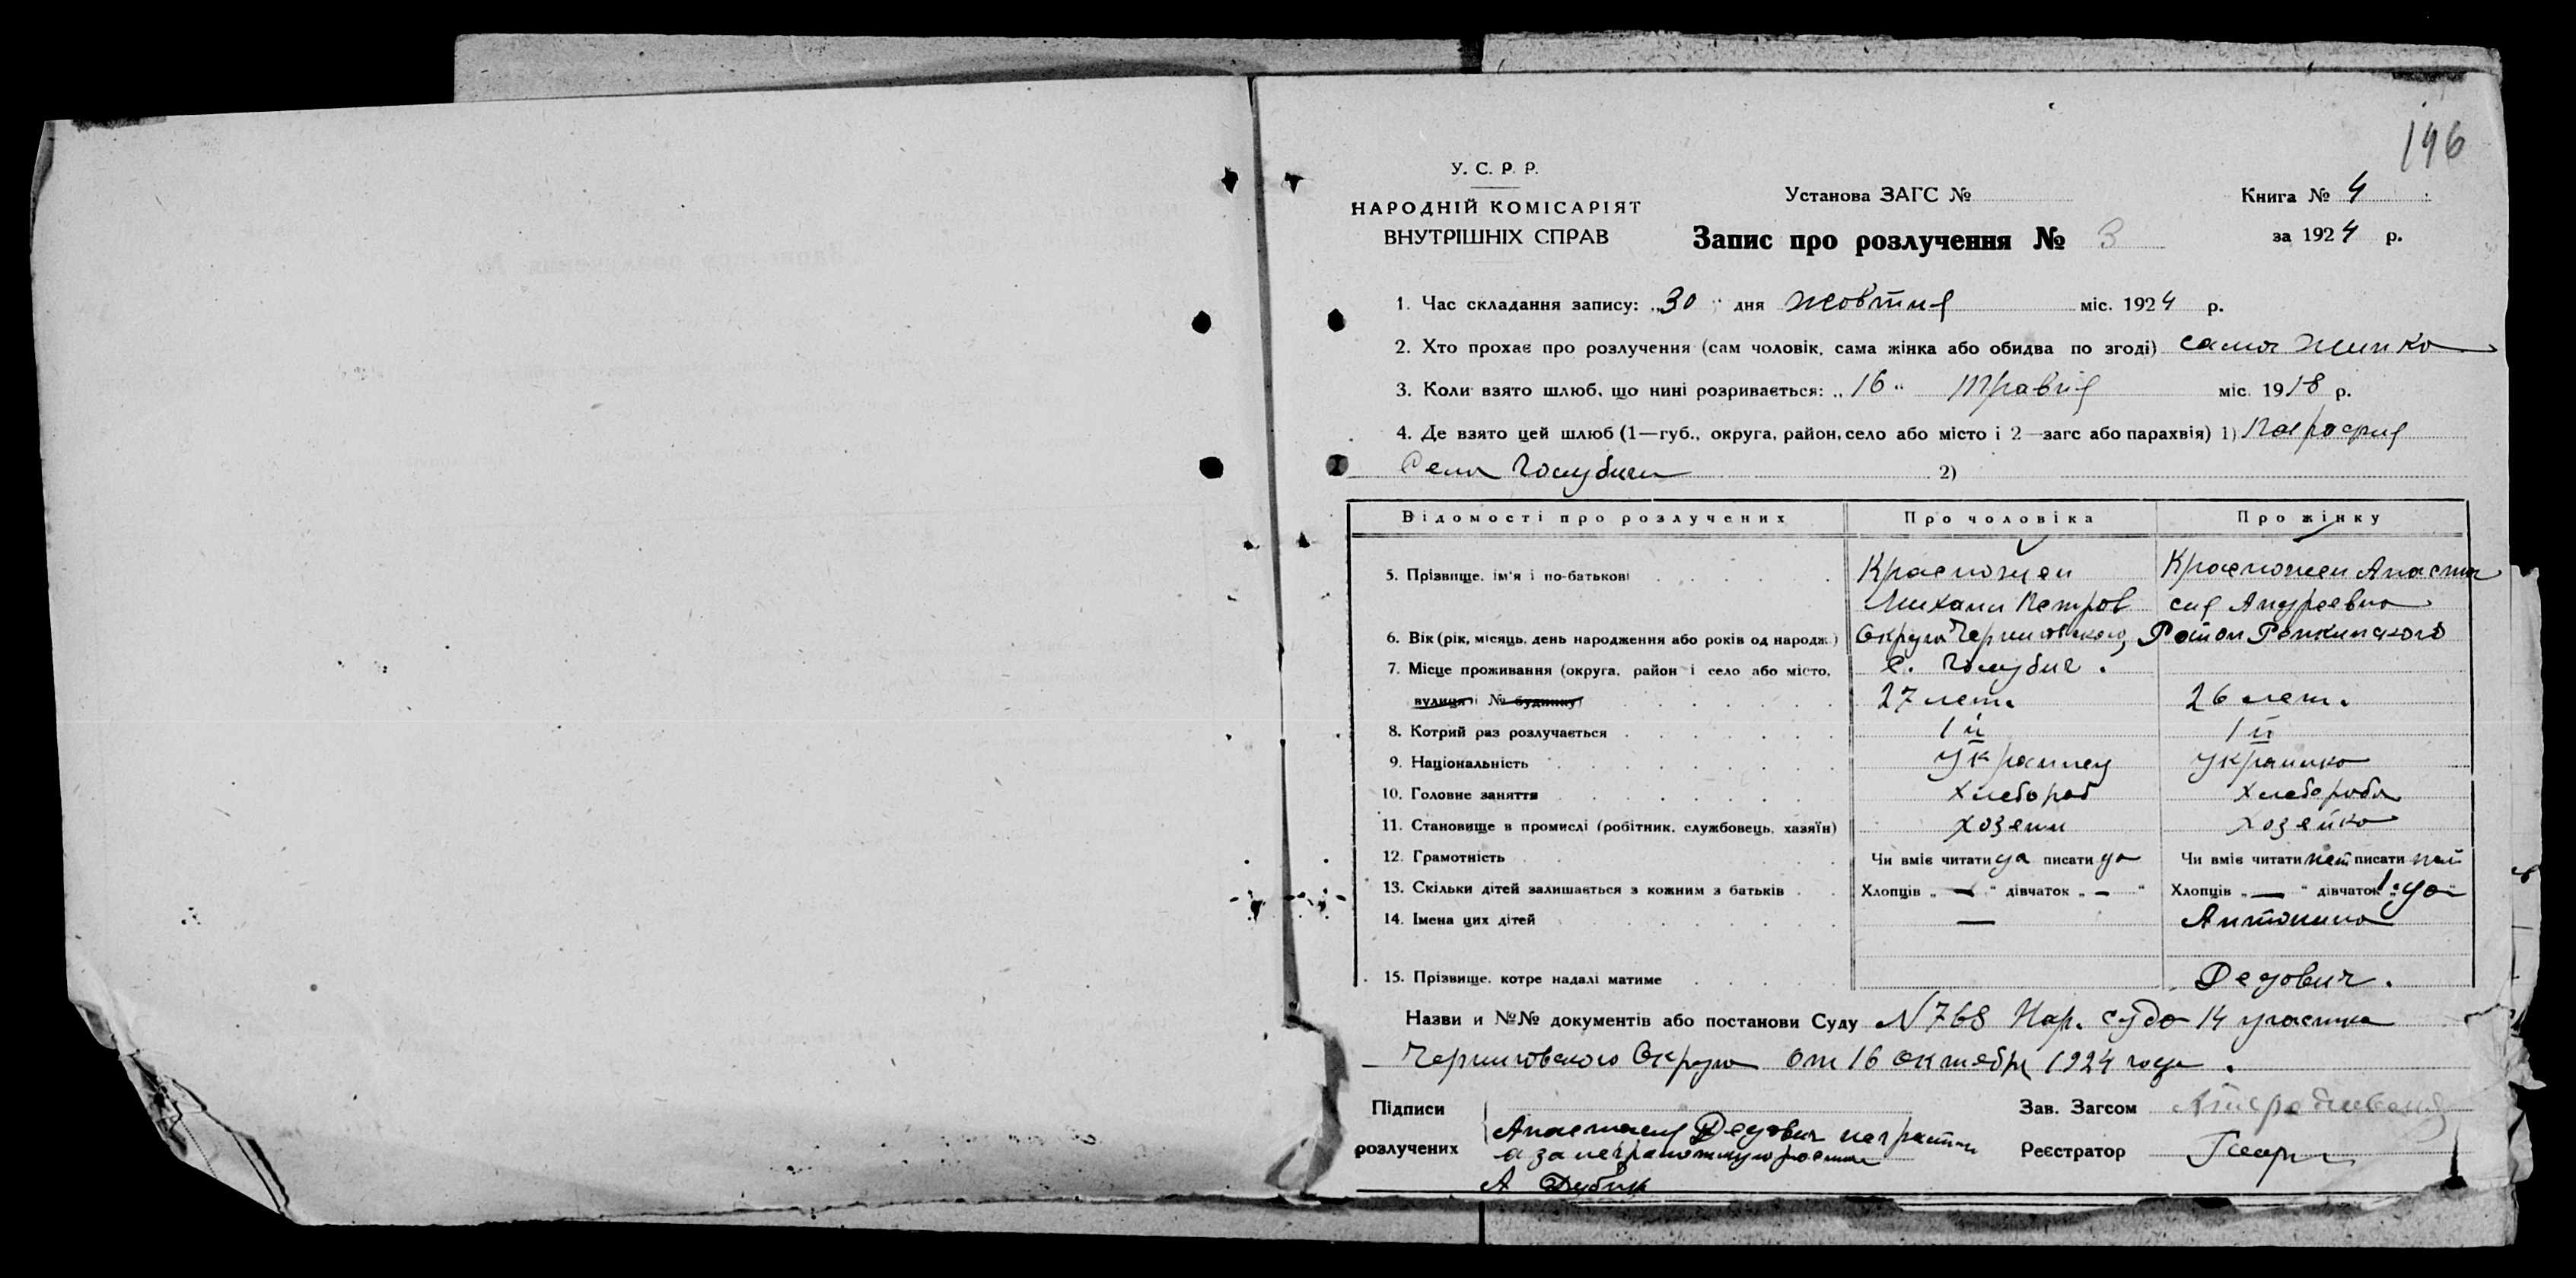 196
У. С. Р. Р.
НАРОДНІЙ КОМІСАРІЯТ
ВНУТРІШНІХ СПРАВ
Установа ЗАГС №
Книга № 4
Запис про розлучення № 3
за 1924 р.
1. Час складання запису: „30“ дня жовтня міс. 1924 р.
2. Хто прохає про розлучення (сам чоловік, сама жінка або обидва по згоді) сама жинка
3. Коли взято шлюб, що нині розривається: „16“ травня міс. 1918 р.
4. Де взято цей шлюб (1—губ., округа, район, село або місто і 2—загс або парахвія) 1)
Села Голубичи 2)
Відомості про розлучених Про чоловіка Про жінку
5. Прізвище, ім'я і по-батькові Красножен Красножен Анаста
Михаил Петров сия Андреевна
6. Вік (рік, місяць, день народження або років од народж.) Округа Черниговского, Район Репкинского
7. Місце проживання (округа, район і село або місто, с. Голубич.
вулиця і № будинку) 27 лет. 26 лет.
8. Котрий раз розлучається 1й 1й
9. Національність Украинец Украинка
10. Головне заняття Хлебороб Хлеборобка
11. Становище в промислі (робітник, службовець, хазяїн) хозеин хозейка
12. Грамотність Чи вміє читати да писати да Чи вміє читати нет писати нет
13. Скільки дітей залишається з кожним з батьків Хлопців „—“ дівчаток „—“ Хлопців „—“ дівчаток „1:на“
14. Імена цих дітей — Антонина
15. Прізвище, котре надалі матиме Дедович.
Назви и №№ документів або постанови Суду N 768 Нар. суда 14 участка
Черниговского Округа от 16 октября 1924 года.
Підписи
розлучених
Анастасия Дедович неграмотн
а за неграмотную
А Дубик
Зав. Загсом
Реєстратор